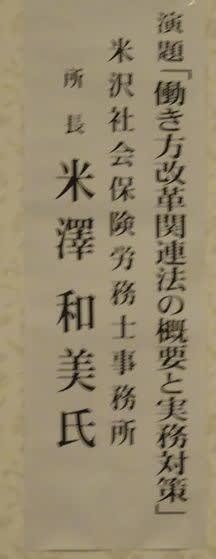 演題「働き方改革関連法の概要と実務対策」
米沢社会保険労務士事務所
所長 米澤 和美氏